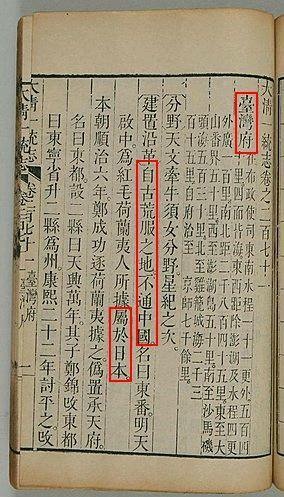 大清一統志卷之二百七十一
臺灣府
在布政使司東南水程一十一更外五百四
山番界五十里西至澎湖島五十里南至沙馬磯
頭海五百三十里北至雞籠城海二千三
百十五里自府治至 京師七千餘里
分野天文牽牛須女分野星紀之次
建置沿革自古荒服之地不通中國名曰東番明天
啟中為紅毛荷蘭夷人所據屬於日本
本朝順治六年鄭成功逐荷蘭夷據之偽置承天府
名曰東都設二縣曰天興萬年其子鄭錦改東都
曰東寧省升二縣為州康熙二十二年討平之改
大清一統志
臺灣府
一